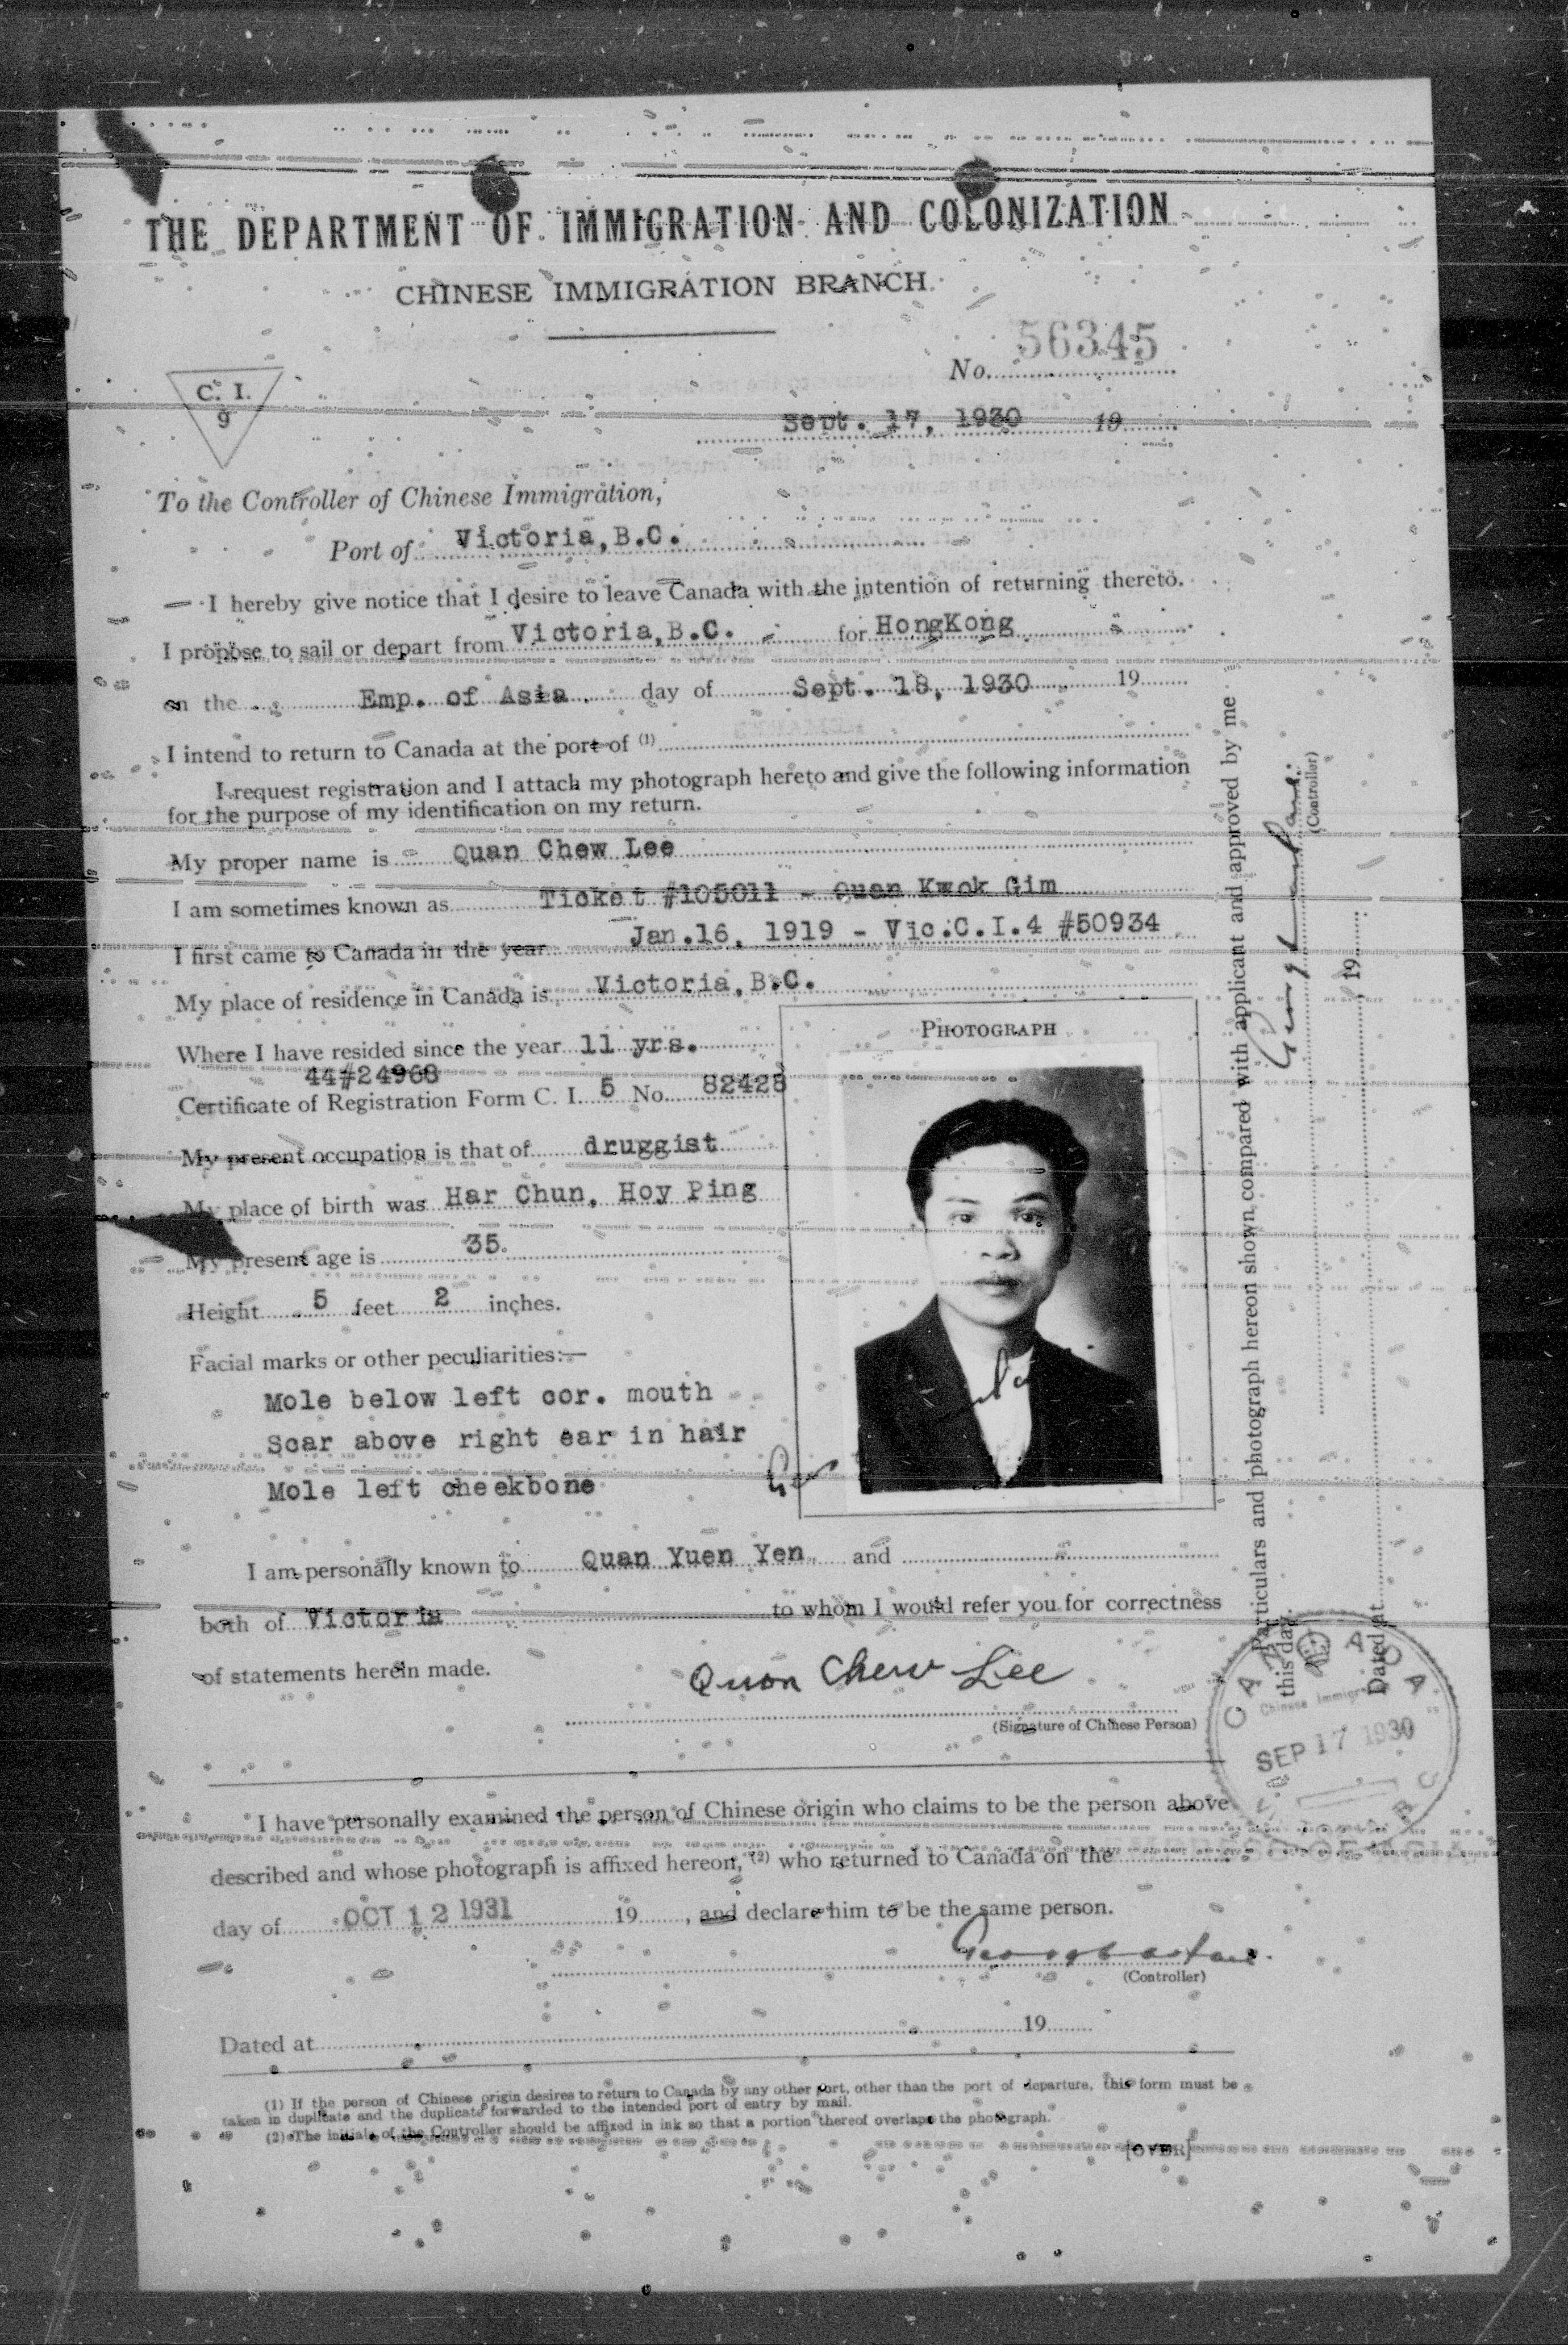 THE DEPARTMENT OF IMMIGRATION AND COLONIZATION
CHINESE IMMIGRATION BRANCH
No. 56345
C. I.
9
Sept. 17, 1930 19
To the Controller of Chinese Immigration,
Port of Victoria, B.C.
I hereby give notice that I desire to leave Canada with the intention of returning thereto.
I propose to sail or depart from Victoria, B.C. for HongKong
on the Emp. of Asia day of Sept. 18, 1930 19
I intend to return to Canada at the port of (1)
I request registration and I attach my photograph hereto and give the following information
for the purpose of my identification on my return.
My proper name is Quan Chew Lee
I am sometimes known as Ticket #105011 - Quan Kwok Gim
I first came to Canada in the year Jan.16, 1919 - Vic.C.I.4 #50934
My place of residence in Canada is Victoria, B.C.
Where I have resided since the year 11 yrs.
44#24968
Certificate of Registration Form C. I. 5 No. 82428
My present occupation is that of druggist
My place of birth was Har Chun, Hoy Ping
My present age is 35
Height 5 feet 2 inches.
Facial marks or other peculiarities:—
Mole below left cor. mouth
Scar above right ear in hair
Mole left cheekbone
PHOTOGRAPH
I am personally known to Quan Yuen Yen and
both of Victoria to whom I would refer you for correctness
of statements herein made.
Quon Chew Lee
(Signature of Chinese Person)
I have personally examined the person of Chinese origin who claims to be the person above
described and whose photograph is affixed hereon, (2) who returned to Canada on the
day of OCT 12 1931 19 , and declare him to be the same person.
(Controller)
Dated at 19
(1) If the person of Chinese origin desires to return to Canada by any other port, other than the port of departure, this form must be
taken in duplicate and the duplicate forwarded to the intended port of entry by mail.
(2) The initials of the Controller should be affixed in ink so that a portion thereof overlaps the photograph.
[OVER]
Particulars and photograph hereon shown compared with applicant and approved by me
this day.
(Controller)
Dated at 19
CANADA
Chinese Immigration
SEP 17 1930
EMPRESS OF ASIA